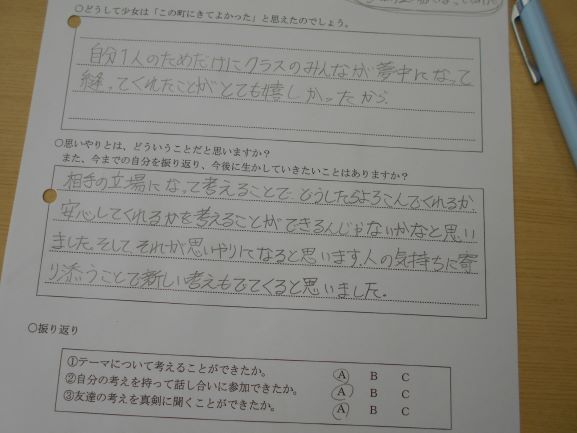 ○どうして少女は「この町にきてよかった」と思えたのでしょう。
自分1人のためだけにクラスのみんなが夢中になって
縫ってくれたことがとても嬉しかったから。
○思いやりとは、どういうことだと思いますか？
また、今までの自分を振り返り、今後に生かしていきたいことはありますか？
相手の立場になって考えることで どうしたらよろこんでくれるか、
安心してくれるかを考えることができるんじゃないかなと思い
ました。そして、それが思いやりになると思います。人の気持ちに寄
り添うことで新しい考えもでてくると思いました。
○振り返り
①テーマについて考えることができたか。 A B C
②自分の考えを持って話し合いに参加できたか。 A B C
③友達の考えを真剣に聞くことができたか。 A B C